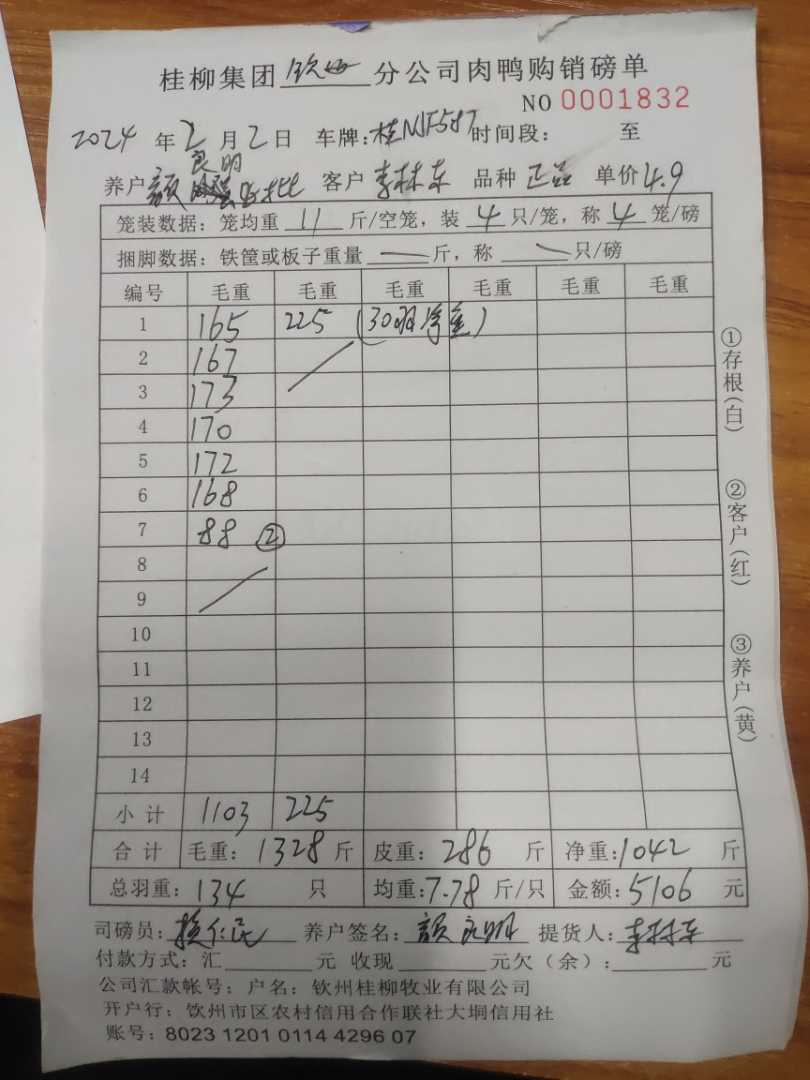 桂柳集团钦州分公司肉鸭购销磅单
NO 0001832
2024年2月2日 车牌:桂NJF587 时间段: 至
良明
养户 颜 批 客户 李林东 品种 正品 单价4.9
笼装数据:笼均重 11 斤/空笼,装 4 只/笼,称 4 笼/磅
捆脚数据:铁筐或板子重量 — 斤,称 — 只/磅
编号 毛重 毛重 毛重 毛重 毛重 毛重
1 165 225 (30羽净重)
2 167
3 173
4 170
5 172
6 168
7 88 ②
8
9
10
11
12
13
14
小计 1103 225
合计 毛重:1328斤 皮重:286斤 净重:1042斤
总羽重:134只 均重:7.78斤/只 金额:5106元
司磅员: 仁民 养户签名:颜良明 提货人:李林东
付款方式:汇 元 收现 元欠(余): 元
公司汇款帐号:户名:钦州桂柳牧业有限公司
开户行:钦州市区农村信用合作联社大垌信用社
账号:8023 1201 0114 4296 07
①存根(白)
②客户(红)
③养户(黄)